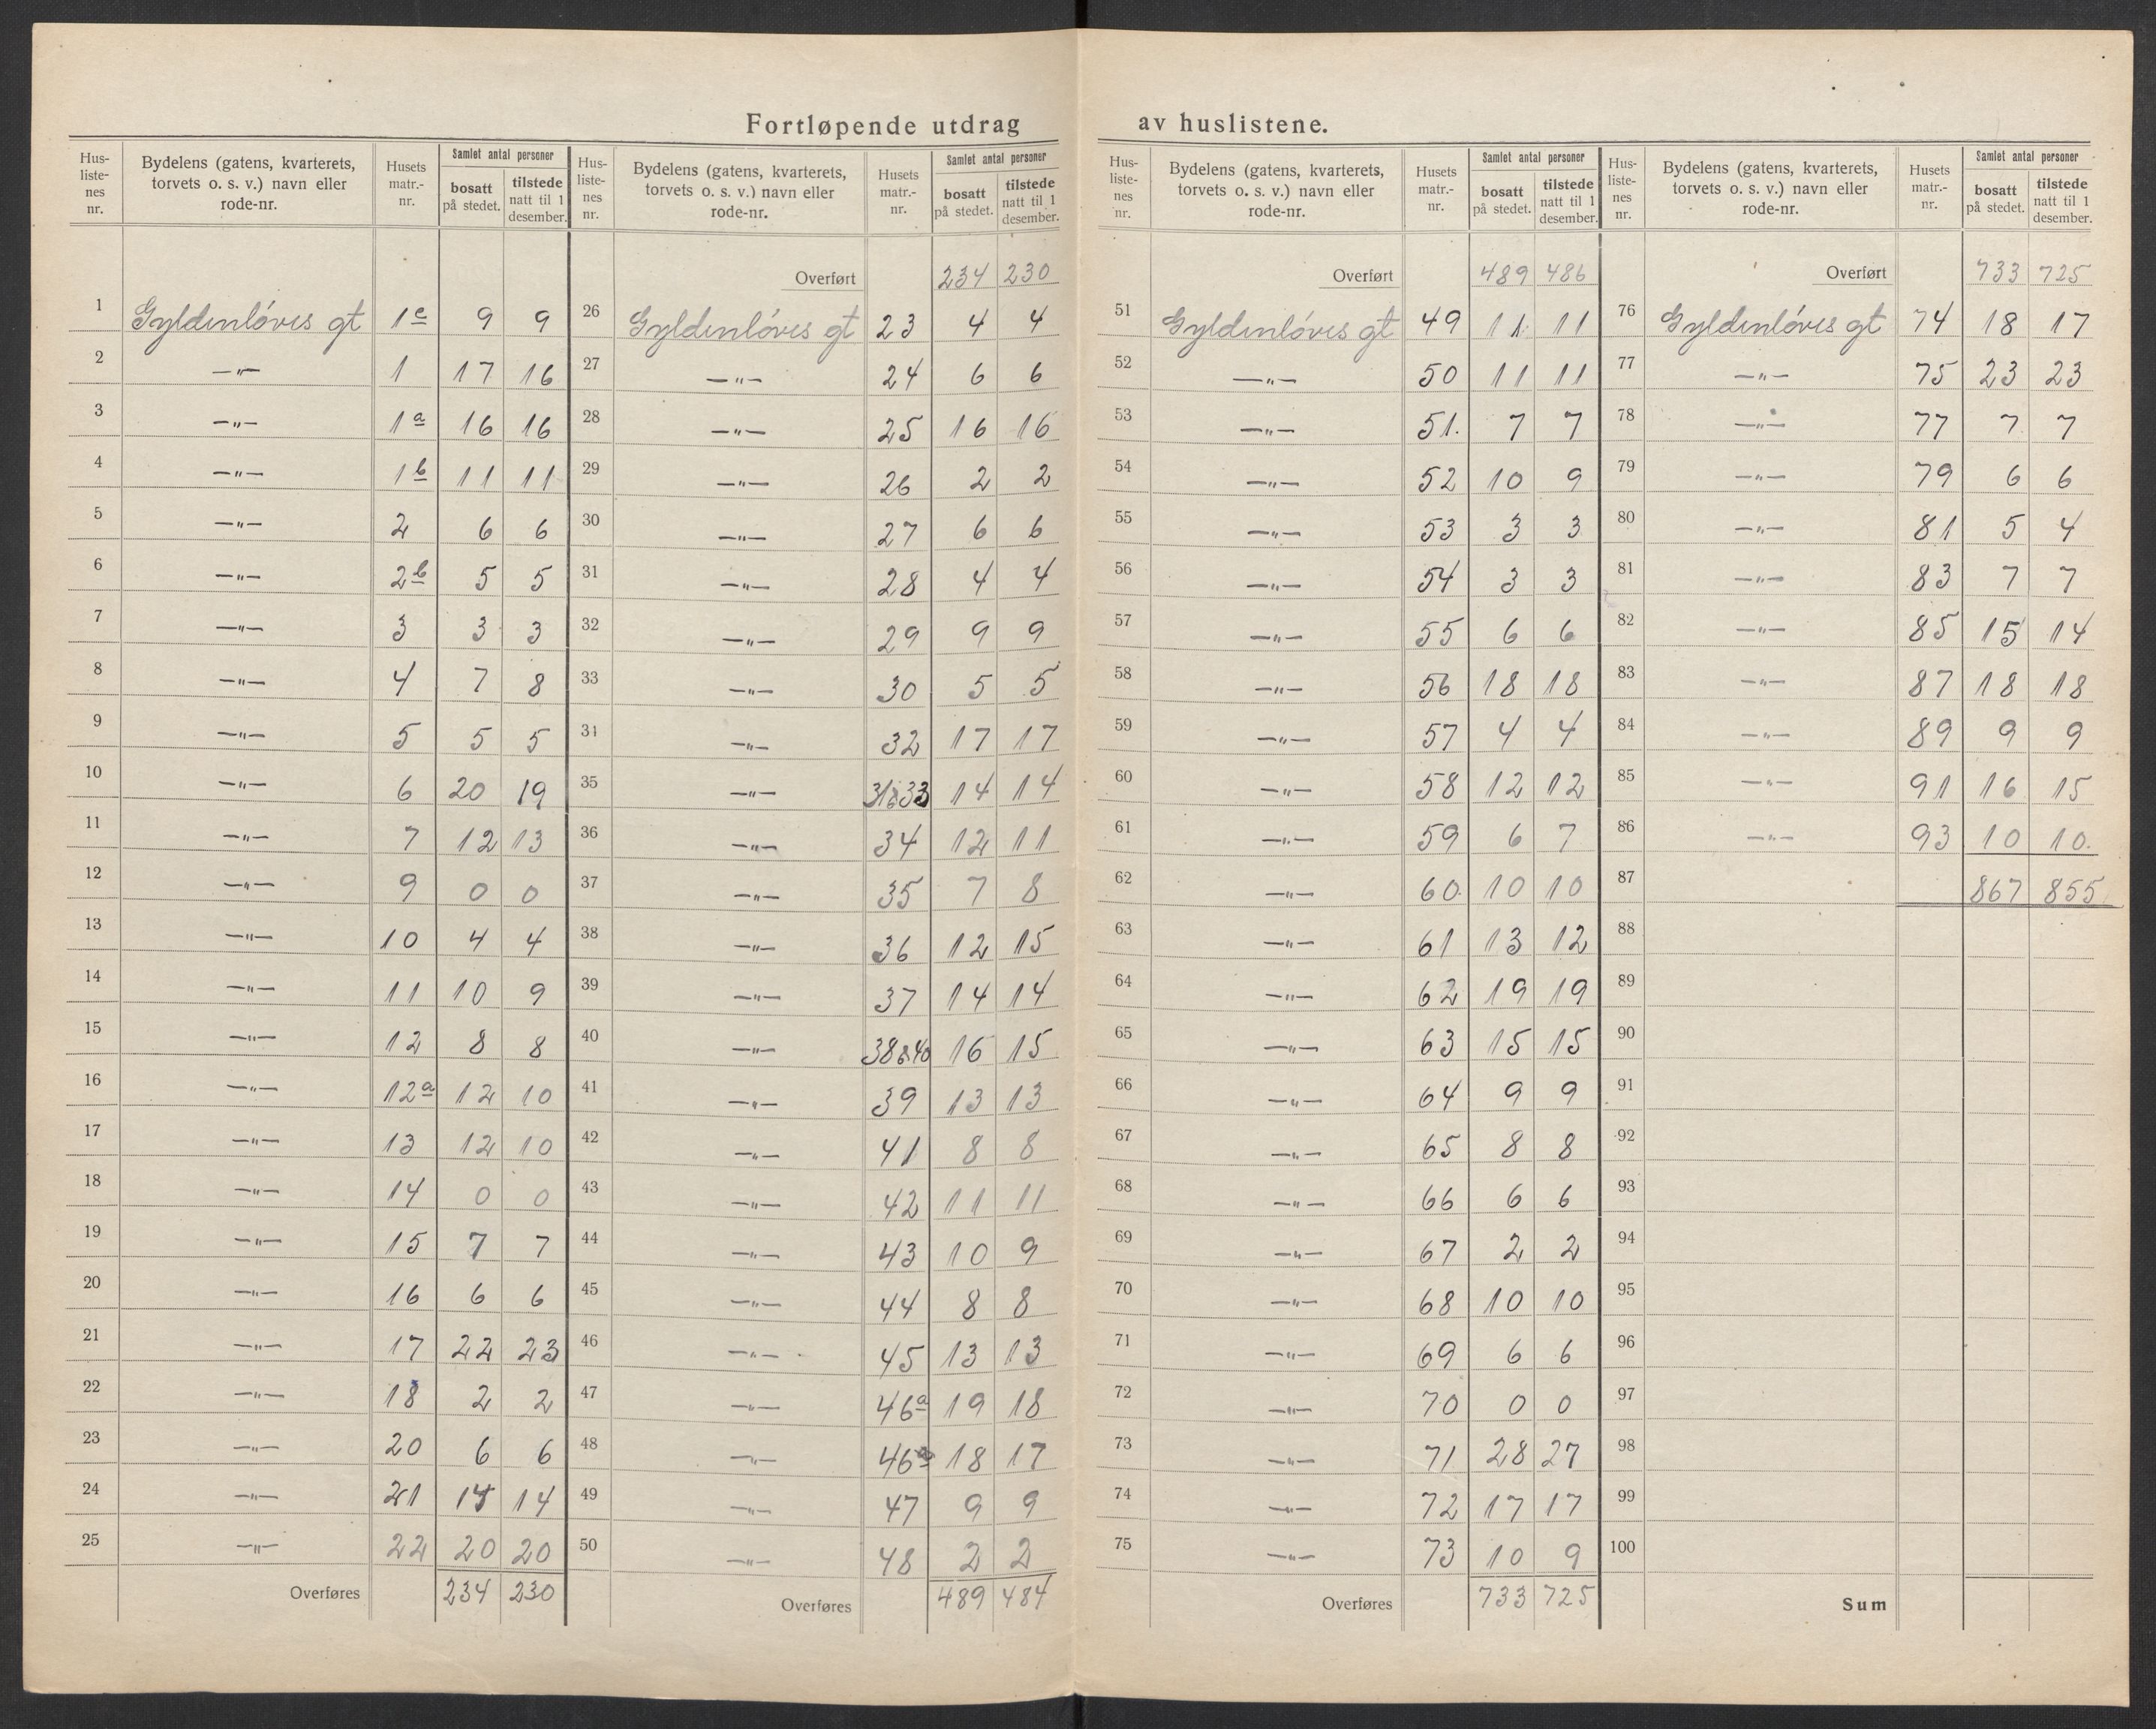 Fortløpende utdrag av huslistene.
Hus-liste-nes nr. | Bydelens (gatens, kvarterets, torvets o. s. v.) navn eller rode-nr. | Husets matr.-nr. | Samlet antal personer | bosatt på stedet. | tilstede natt til 1 desember.
1 Gyldenløves gt 1c 9 9
2 —"— 1 17 16
3 —"— 1a 16 16
4 —"— 1b 11 11
5 —"— 2 6 6
6 —"— 2b 5 5
7 —"— 3 3 3
8 —"— 4 7 8
9 —"— 5 5 5
10 —"— 6 20 19
11 —"— 7 12 13
12 —"— 9 0 0
13 —"— 10 4 4
14 —"— 11 10 9
15 —"— 12 8 8
16 —"— 12a 12 10
17 —"— 13 12 10
18 —"— 14 0 0
19 —"— 15 7 7
20 —"— 16 6 6
21 —"— 17 22 23
22 —"— 18 2 2
23 —"— 20 6 6
24 —"— 21 14
25 —"— 22 20 20
Overføres 234 230
Hus-liste-nes nr. | Bydelens (gatens, kvarterets, torvets o. s. v.) navn eller rode-nr. | Husets matr.-nr. | Samlet antal personer | bosatt på stedet. | tilstede natt til 1 desember.
Overført 234 230
26 Gyldenløves gt 23 4 4
27 —"— 24 6 6
28 —"— 25 16 16
29 —"— 26 2 2
30 —"— 27 6 6
31 —"— 28 4 4
32 —"— 29 9 9
33 —"— 30 5 5
31 —"— 32 17 17
35 —"— 31&33 14 14
36 —"— 34 12 11
37 —"— 35 7 8
38 —"— 36 12 15
39 —"— 37 14 14
40 —"— 38&40 16 15
41 —"— 39 13 13
42 —"— 41 8 8
43 —"— 42 11 11
44 —"— 43 10 9
45 —"— 44 8 8
46 —"— 45 13 13
47 —"— 46a 19 18
48 —"— 46 18 17
49 —"— 47 9 9
50 —"— 48 2 2
Overføres 489 484
Hus-liste-nes nr. | Bydelens (gatens, kvarterets, torvets o. s. v.) navn eller rode-nr. | Husets matr.-nr. | Samlet antal personer | bosatt på stedet. | tilstede natt til 1 desember.
Overført 489 486
51 Gyldenløves gt 49 11 11
52 —"— 50 11 11
53 —"— 51. 7 7
54 —"— 52 10 9
55 —"— 53 3 3
56 —"— 54 3 3
57 —"— 55 6 6
58 —"— 56 18 18
59 —"— 57 4 4
60 —"— 58 12 12
61 —"— 59 6 7
62 —"— 60. 10 10
63 —"— 61 13 12
64 —"— 62 19 19
65 —"— 63 15 15
66 —"— 64 9 9
67 —"— 65 8 8
68 —"— 66 6 6
69 —"— 67 2 2
70 —"— 68 10 10
71 —"— 69 6 6
72 —"— 70 0 0
73 —"— 71 28 27
74 —"— 72 17 17
75 —"— 73 10 9
Overføres 733 725
Hus-liste-nes nr. | Bydelens (gatens, kvarterets, torvets o. s. v.) navn eller rode-nr. | Husets matr.-nr. | Samlet antal personer | bosatt på stedet. | tilstede natt til 1 desember.
Overført 733 725
76 Gyldenløves gt 74 18 17
77 —"— 75 23 23
78 —"— 77 7 7
79 —"— 79 6 6
80 —"— 81 5 4
81 —"— 83 7 7
82 —"— 85 15 14
83 —"— 87 18 18
84 —"— 89 9 9
85 —"— 91 16 15
86 —"— 93 10 10.
87 867 855
88
89
90
91
92
93
94
95
96
97
98
99
100
Sum